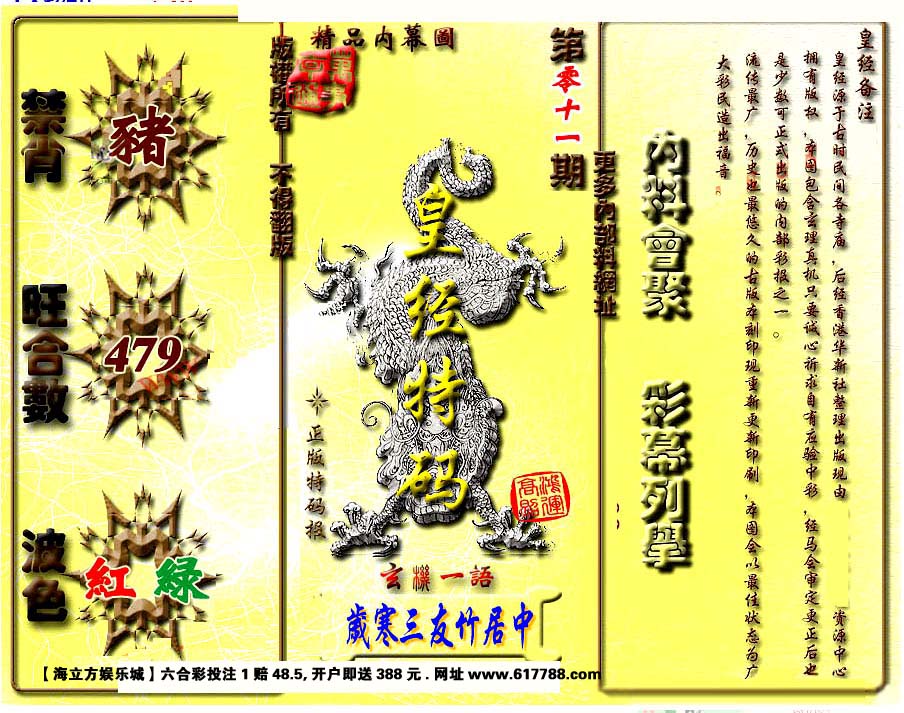 皇经备注
皇经源于古时民间各寺庙，后经香港华新社整理出版现由 资源中心
拥有版权，本图包含玄理真机只要诚心祈求自有应验中彩，经马会审定更正后也
是少数可正式出版的内部彩报之一。
流传最广，历史也最悠久的古版本刻印现重新更新印刷，本图会以最佳状态为广
大彩民造出福音。
内料會聚 彩幕列舉
更多內部料網址
第零十一期
精品内幕圖
皇经特码
正版特码报
鴻運高照
玄機一語
歲寒三友竹居中
版權所有 不得翻版
禁肖
豬
旺合數
479
波色
紅 綠
【海立方娱乐城】六合彩投注 1 赔 48.5, 开户即送 388 元 . 网址 www.617788.com